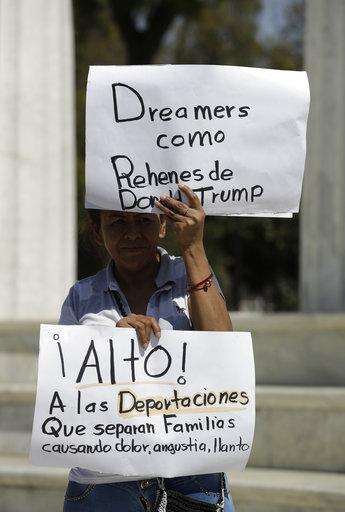 Dreamers
como
Rehenes de
Donald Trump
¡ALTO!
A las Deportaciones
Que separan Familias
causando dolor, angustia, llanto